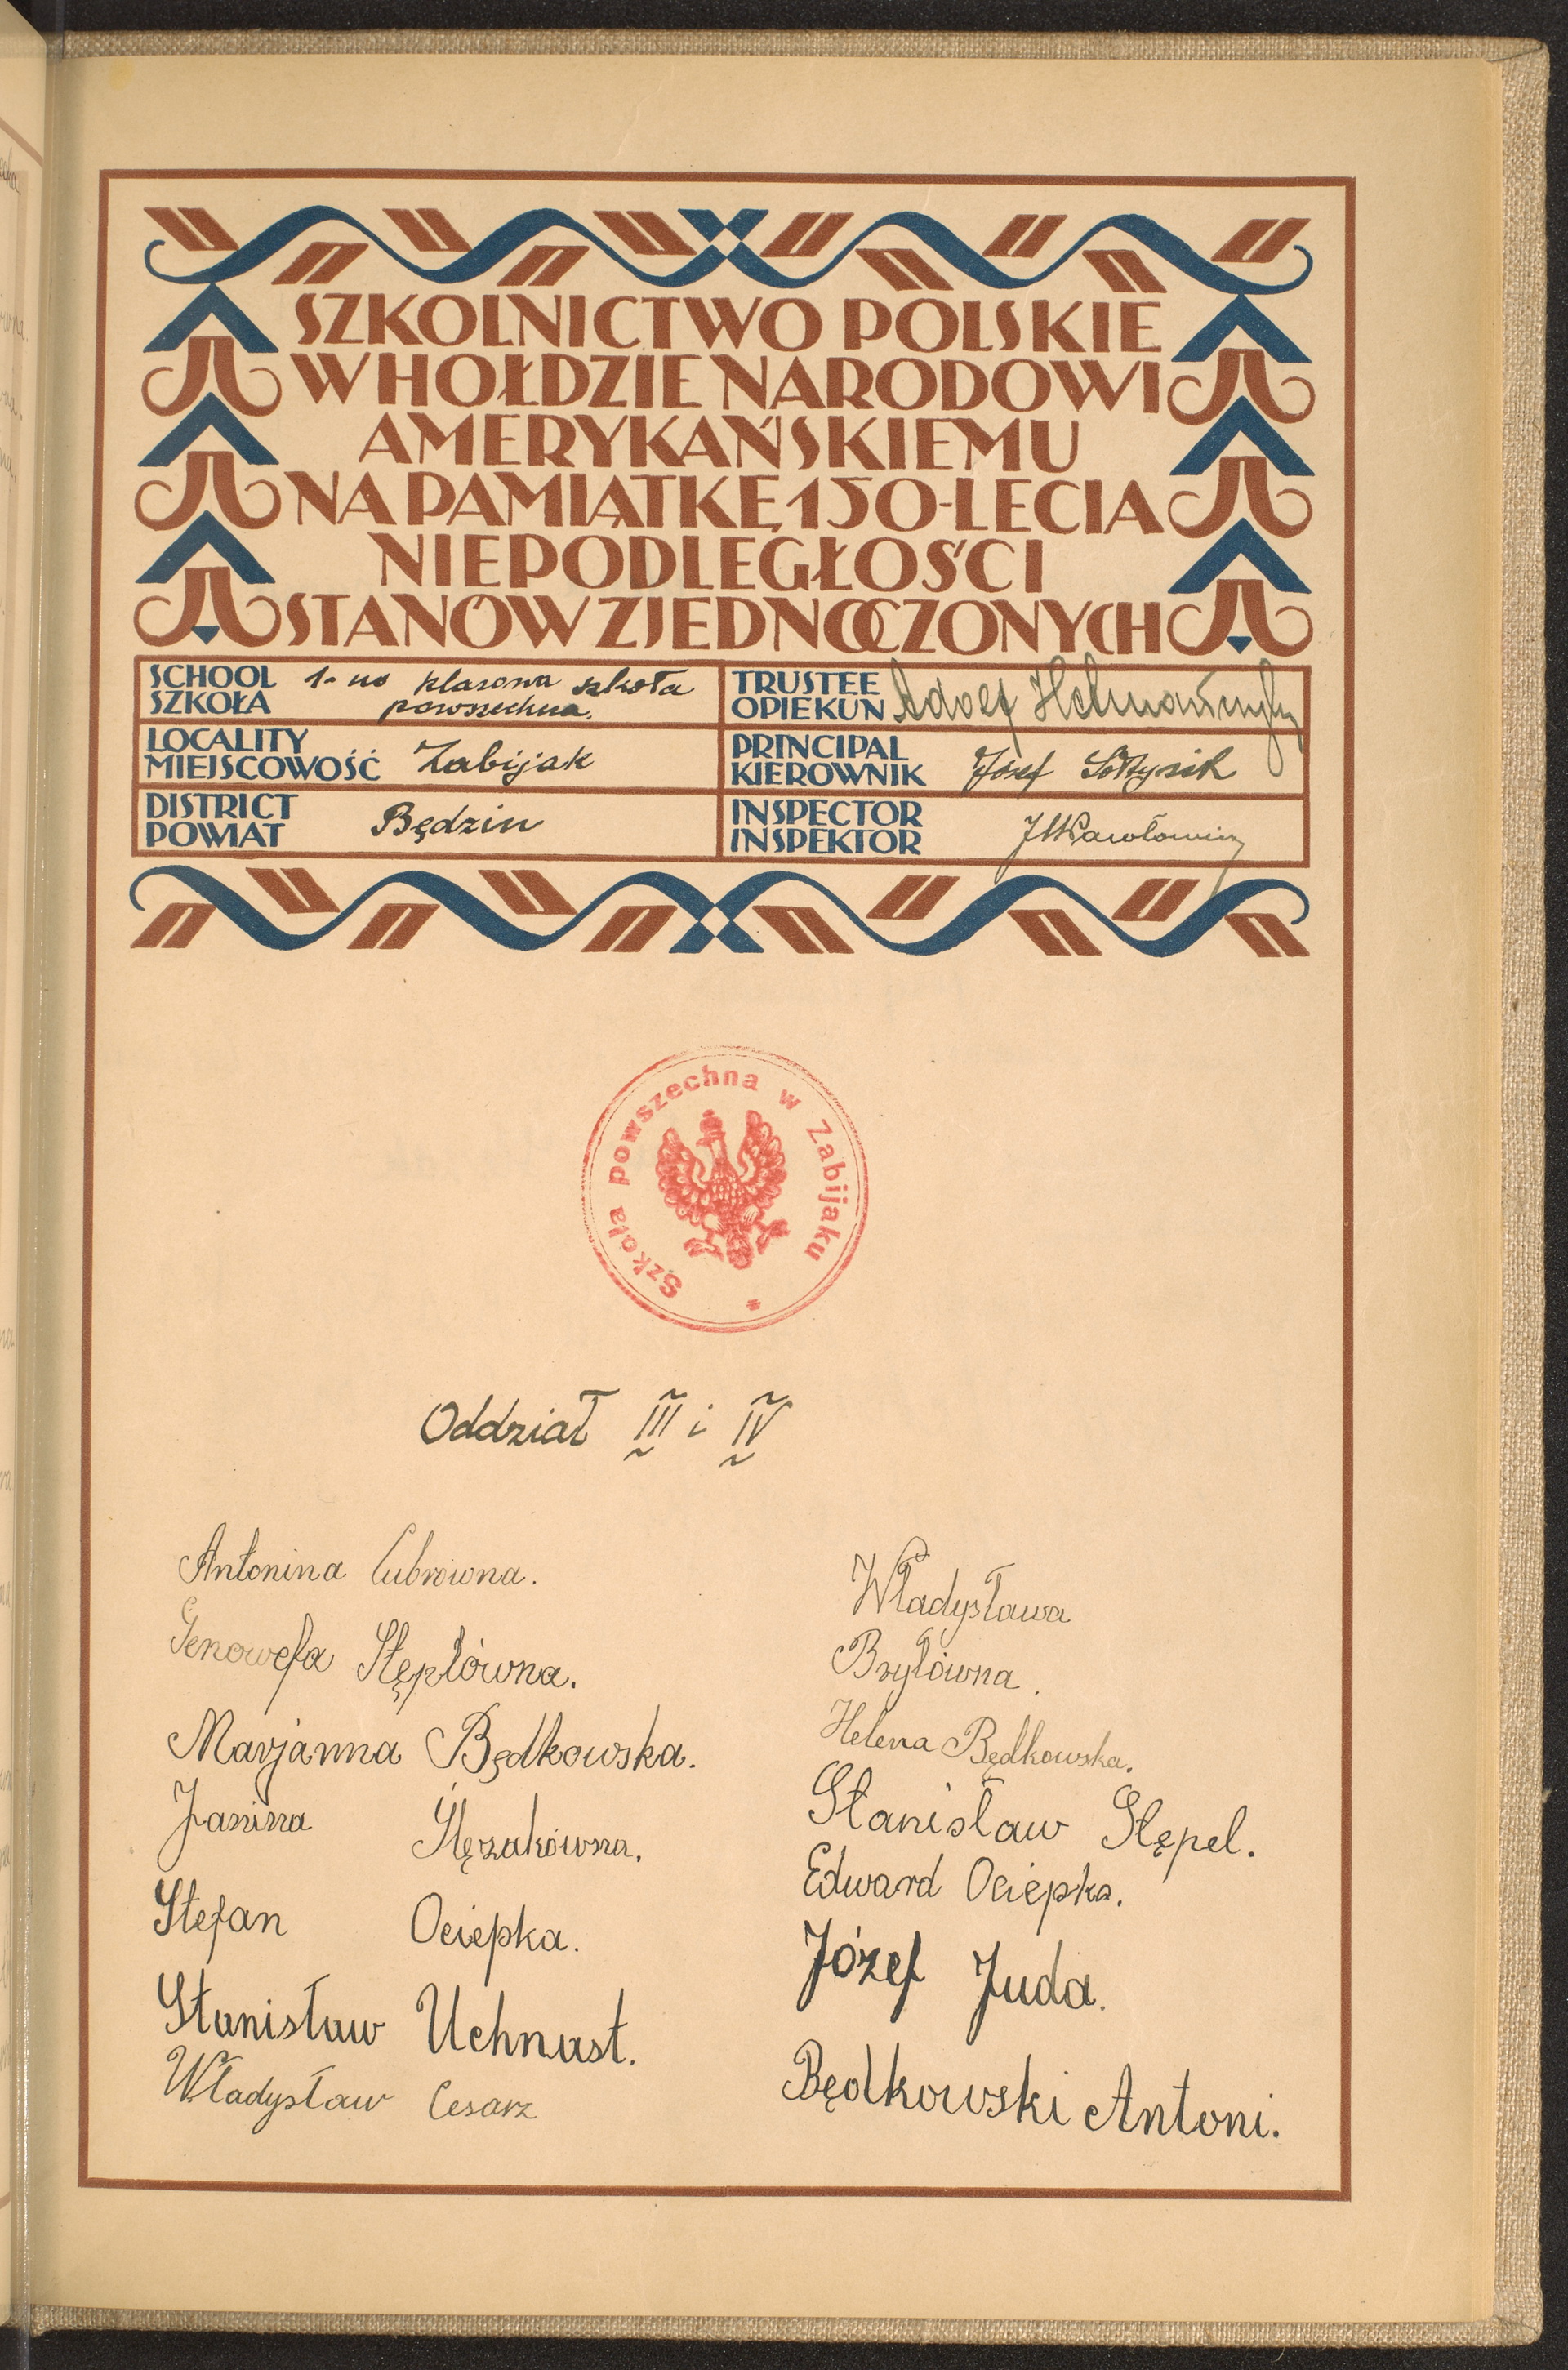 SZKOLNICTWO POLSKIE
W HOŁDZIE NARODOWI
AMERYKAŃSKIEMU
NA PAMIĄTKĘ 150-LECIA
NIEPODLEGŁOŚCI
STANÓW ZJEDNOCZONYCH
SCHOOL
SZKOŁA
1-no klasowa szkoła
powszechna.
TRUSTEE
OPIEKUN
Adolf
LOCALITY
MIEJSCOWOŚĆ
Zabijak
PRINCIPAL
KIEROWNIK
Józef Sołtysik
DISTRICT
POWIAT
Będzin
INSPECTOR
INSPEKTOR
Szkoła powszechna w Zabijaku *
Oddział III i IV
Antonina Cubrówna.
Genowefa Stęplówna.
Marjanna Będkowska.
Janina Ślęzakówna.
Stefan Ociepka.
Stanisław Uchnast.
Władysław Cesarz
Władysława
Bryłówna.
Helena Będkowska.
Stanisław Stępel.
Edward Ociepka.
Józef Juda.
Będkowski Antoni.